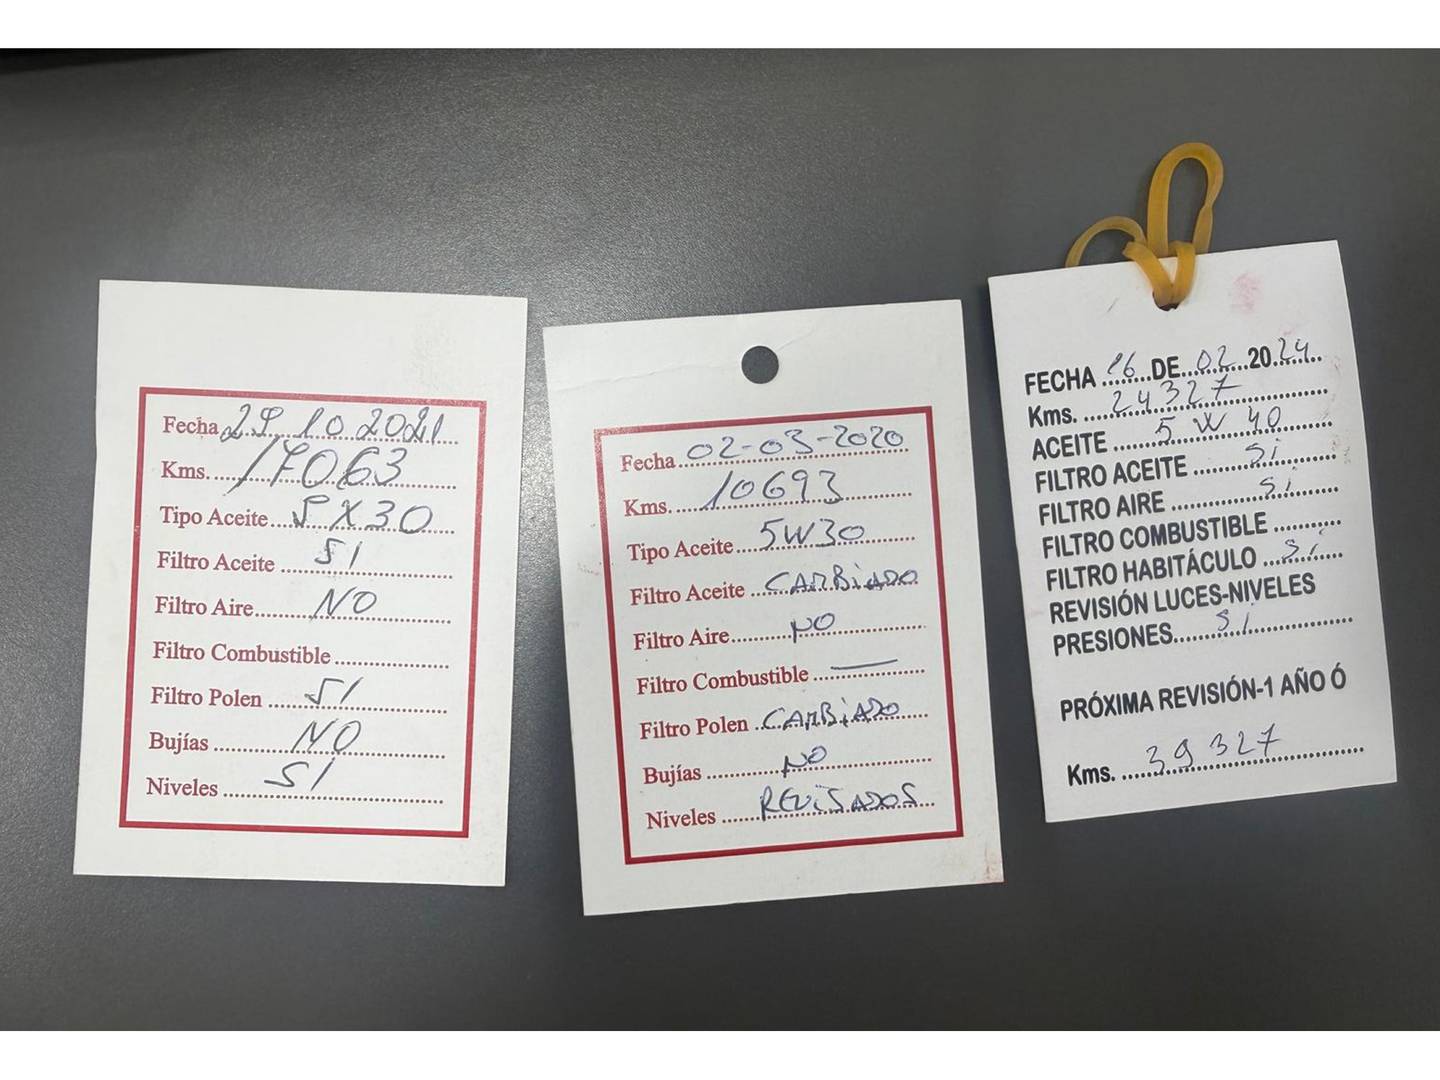 Fecha 29 10 2021
Kms. 17063
Tipo Aceite 5X30
Filtro Aceite SI
Filtro Aire NO
Filtro Combustible
Filtro Polen SI
Bujías NO
Niveles SI
Fecha 02-03-2020
Kms. 10693
Tipo Aceite 5W30
Filtro Aceite CAMBIADO
Filtro Aire NO
Filtro Combustible —
Filtro Polen CAMBIADO
Bujías NO
Niveles REVISADOS
FECHA DE 02 2024
Kms. 24327
ACEITE 5 W 40
FILTRO ACEITE Si
FILTRO AIRE Si
FILTRO COMBUSTIBLE
FILTRO HABITÁCULO Si
REVISIÓN LUCES-NIVELES
PRESIONES Si
PRÓXIMA REVISIÓN-1 AÑO Ó
Kms. 39327